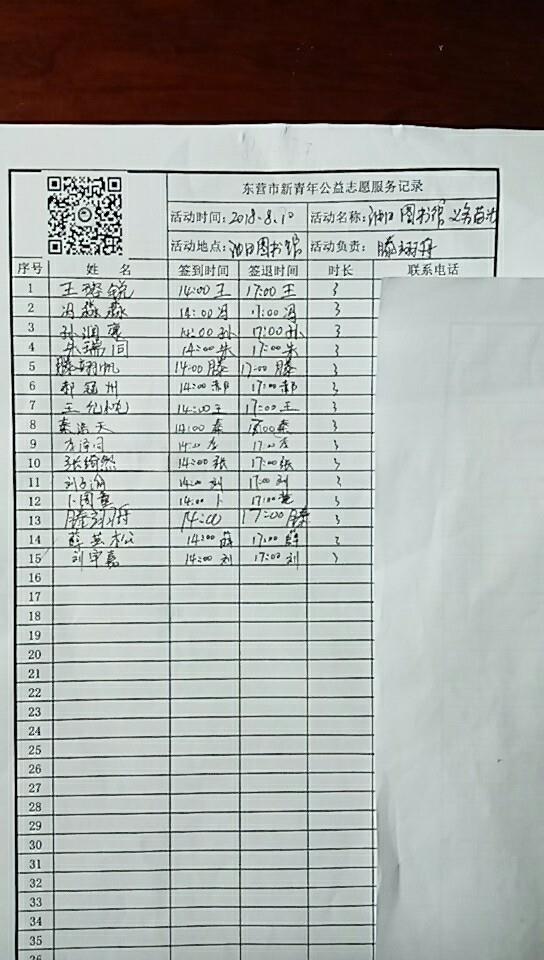 东营市新青年公益志愿服务记录
活动时间：2018.8.10 活动名称：油田图书馆义务
活动地点：油田图书馆 活动负责：滕翔舟
序号 姓 名 签到时间 签退时间 时长 联系电话
1 王 14:00 王 17:00 王 3
2 冯淼淼 14:00 冯 17:00 冯 3
3 孙润 14:00 孙 17:00 孙 3
4 朱瑞同 14:00 朱 17:00 朱 3
5 滕翔帆 14:00 滕 17:00 滕 3
6 郝冠州 14:00 郝 17:00 郝 3
7 王 14:00 王 17:00 王 3
8 秦浩天 14:00 秦 17:00 秦 3
9 14:00 17:00 3
10 张绮然 14:00 张 17:00 张 3
11 刘子渝 14:00 刘 17:00 刘 3
12 卜 14:00 卜 17:00 3
13 滕翔舟 14:00 17:00 滕 3
14 薛 松 14:00 薛 17:00 薛 3
15 刘宇嘉 14:00 刘 17:00 刘 3
16
17
18
19
20
21
22
23
24
25
26
27
28
29
30
31
32
33
34
35
36